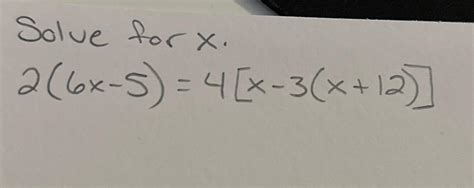 Solve for x.
2(6x-5)=4[x-3(x+12)]